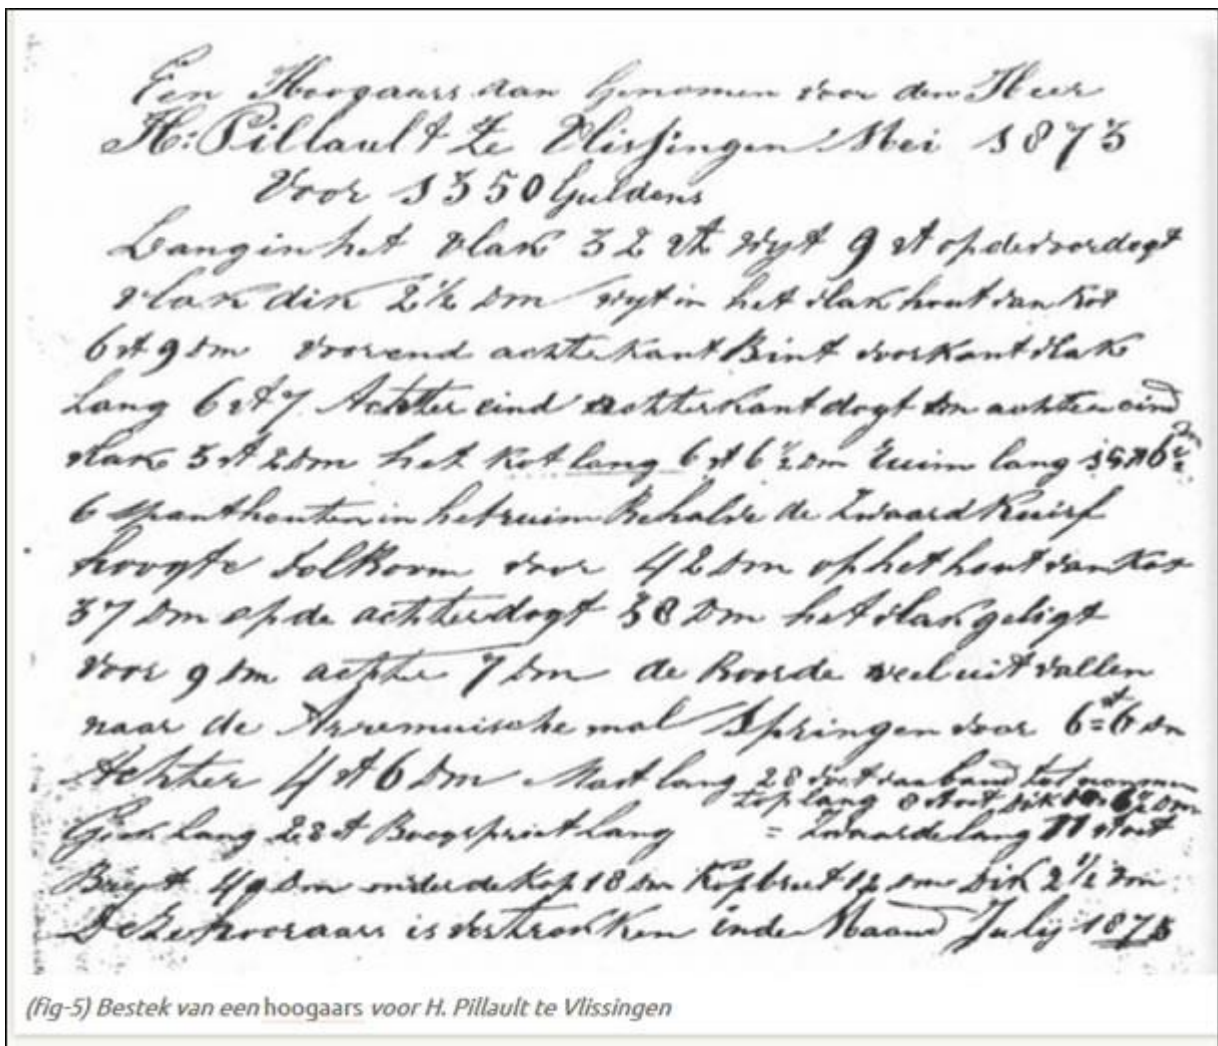 Een Hoogaars aan Genomen voor den Heer
H: Pillault te Vlissingen Mei 1873
Voor 1350 Guldens
Lang in het vlak 32 vt wyt 9 vt op de voordogt
vlak dik 2 1/2 dm wyt in het vlak hout van kot
6 vt 9 dm voorend achtekant Bint voorkant vlak
Lang 6 vt 7 Achter eind achterkant dogt en achter eind
vlak 5 vt 2 dm het kot lang 6 vt 6 1/2 dm Ruim lang
6 spanthouten in het ruim Behalve de Zwaard
hoogte Dolboom voor 42 dm op het hout van kot
37 dm op de achterdogt 38 dm het vlak geligt
voor 9 dm achter 7 dm de Boorde veel uit vallen
naar de Arremuische mal Springen voor 6 vt 6 dm
Achter 4 vt 6 dm Mast lang 28 voet van band tot
top lang 8 voet dik 6 1/2 dm
Giek Lang 28 vt Boegspriet lang = Zwaarde lang 11 voet
Breet 49 dm onder de kop 18 dm kop breet 12 dm Dik 2 1/2 dm
Deze hoogaars is vertrokken in de Maand Julij 1873
(fig-5) Bestek van een hoogaars voor H. Pillault te Vlissingen